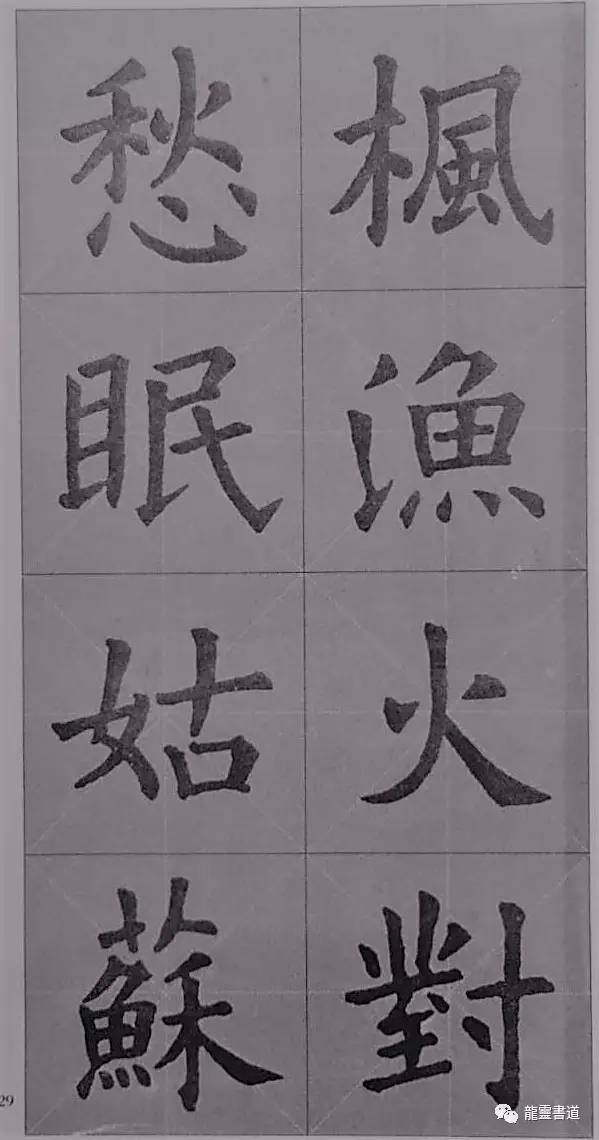 楓漁火對
愁眠姑蘇
29
龍靈書道